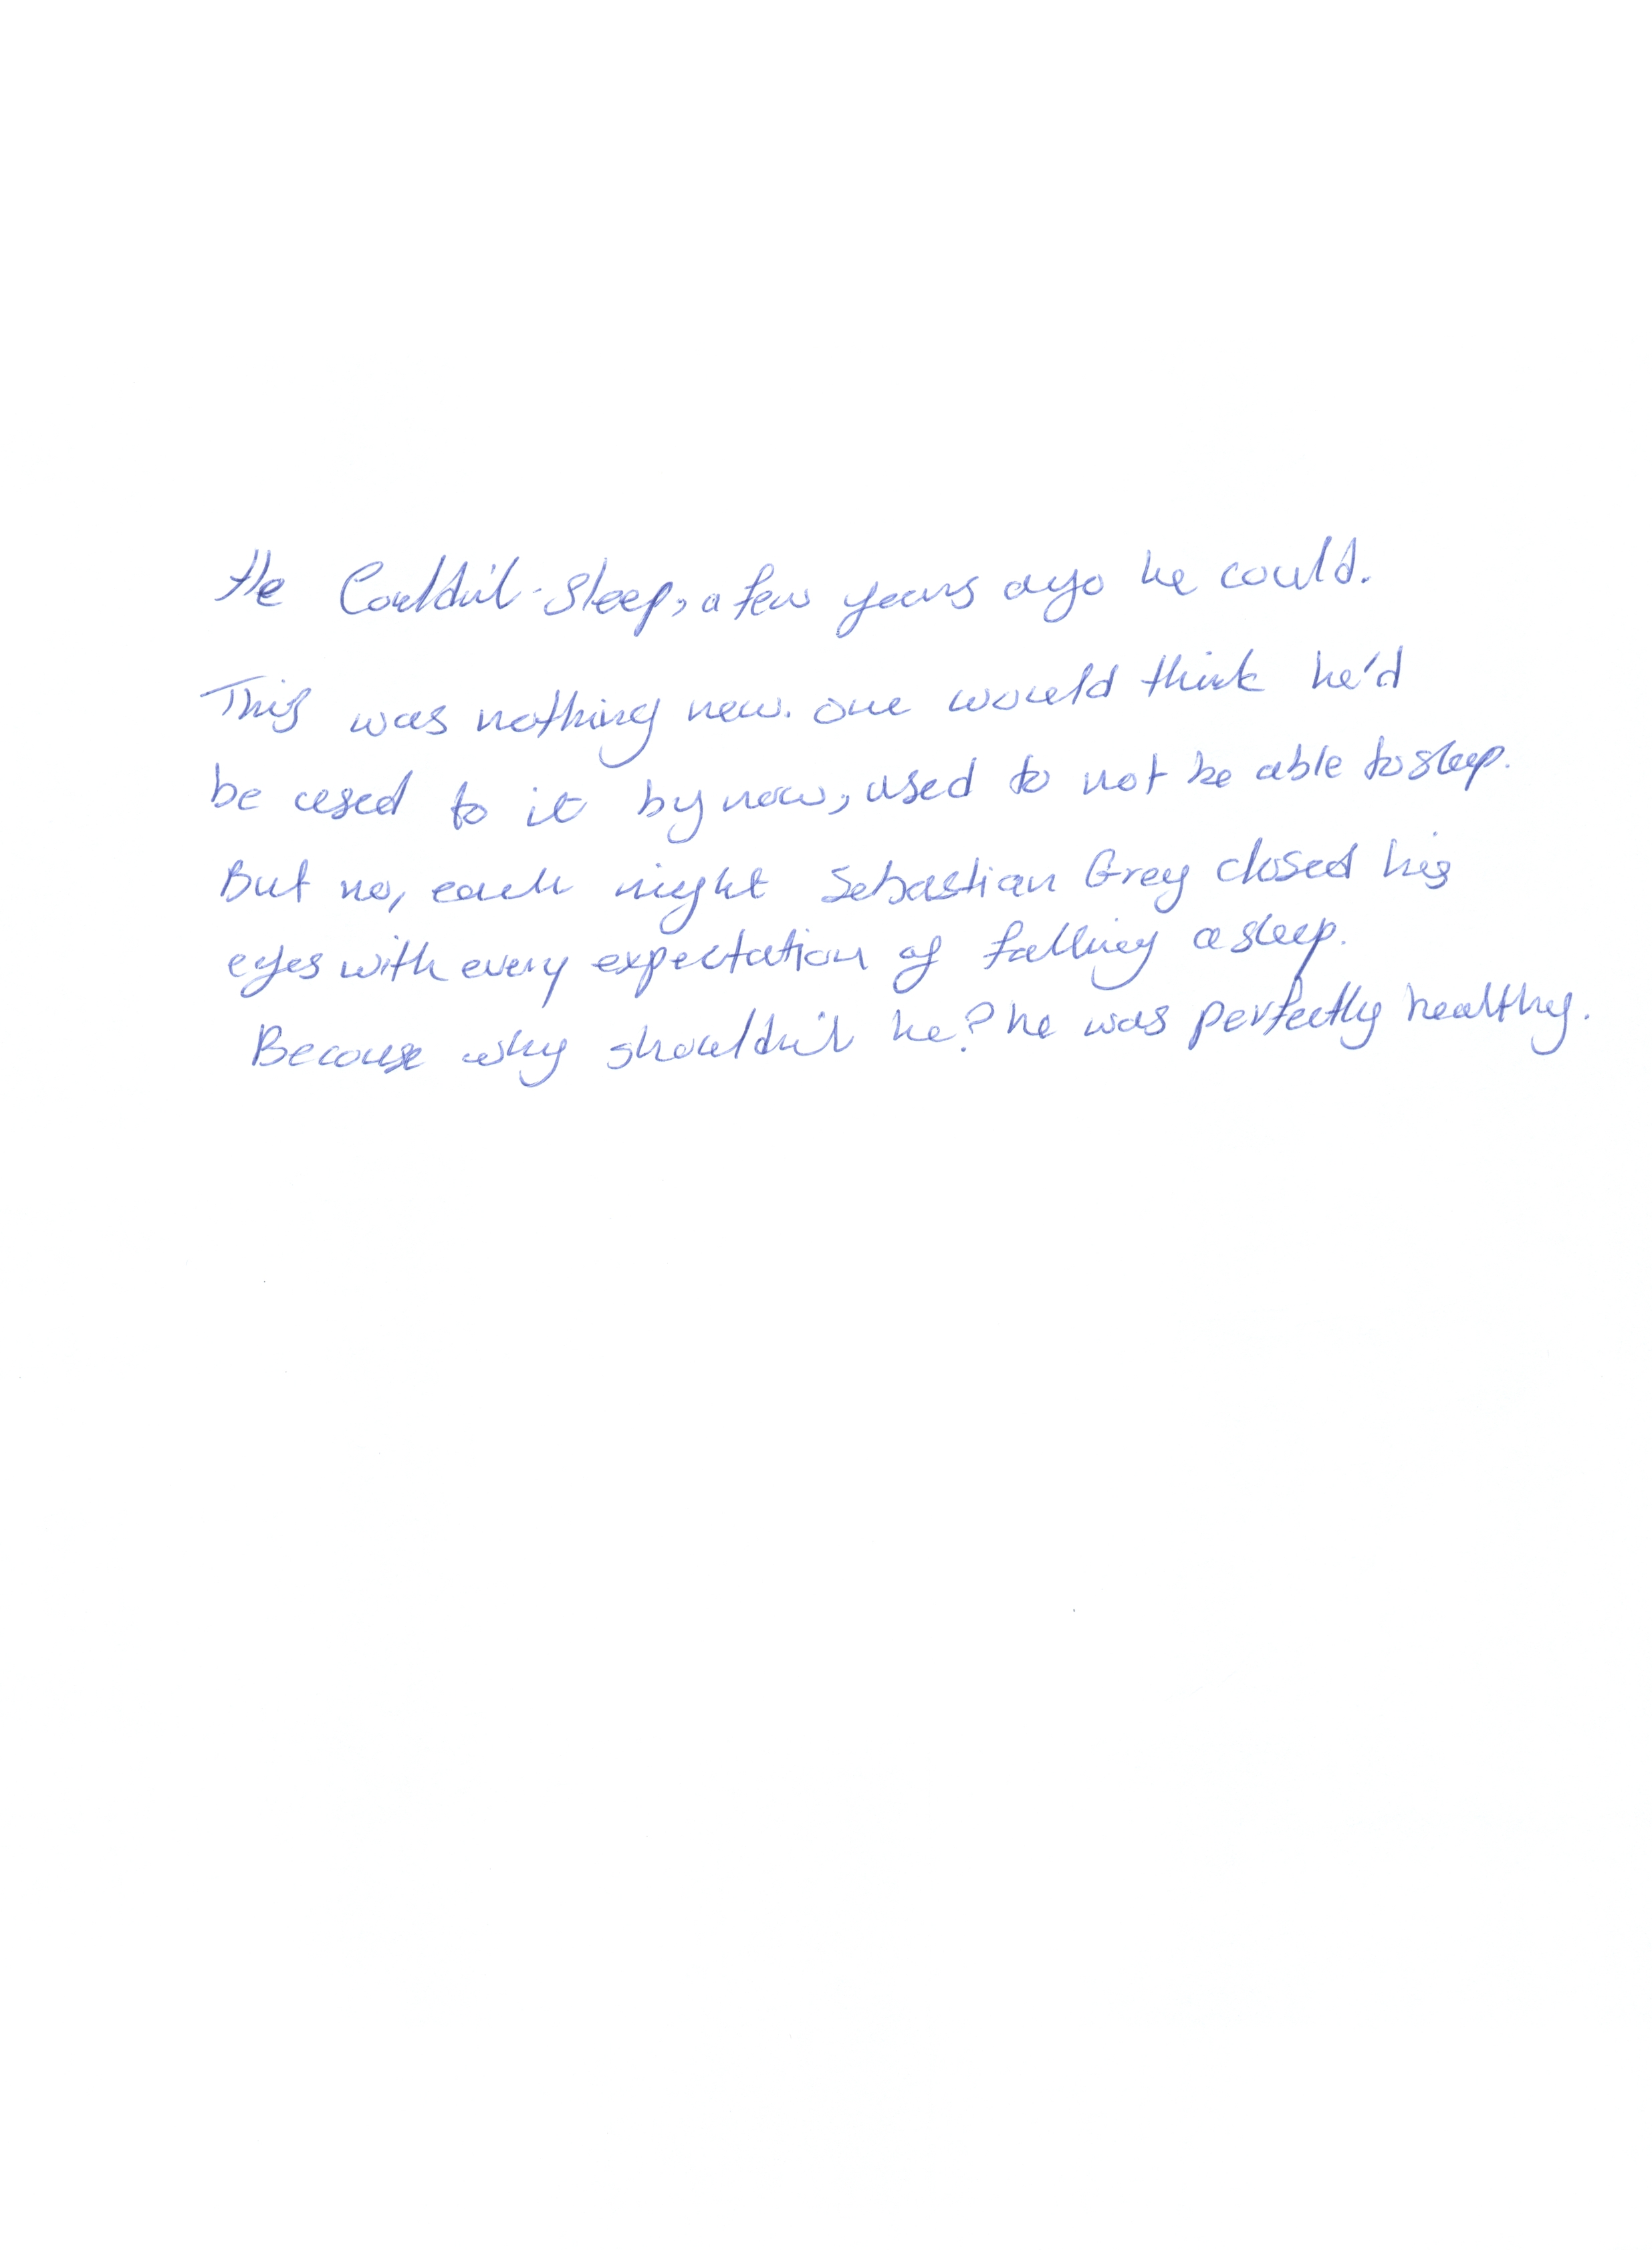 He Couldn't Sleep, a few years ago he could.
This was nothing new. one would think he'd
be used to it by now, used to not be able to sleep.
But no, each night Sebastian Grey closed his
eyes with every expectation of falling asleep.
Because why shouldn't he? he was perfectly healthy.